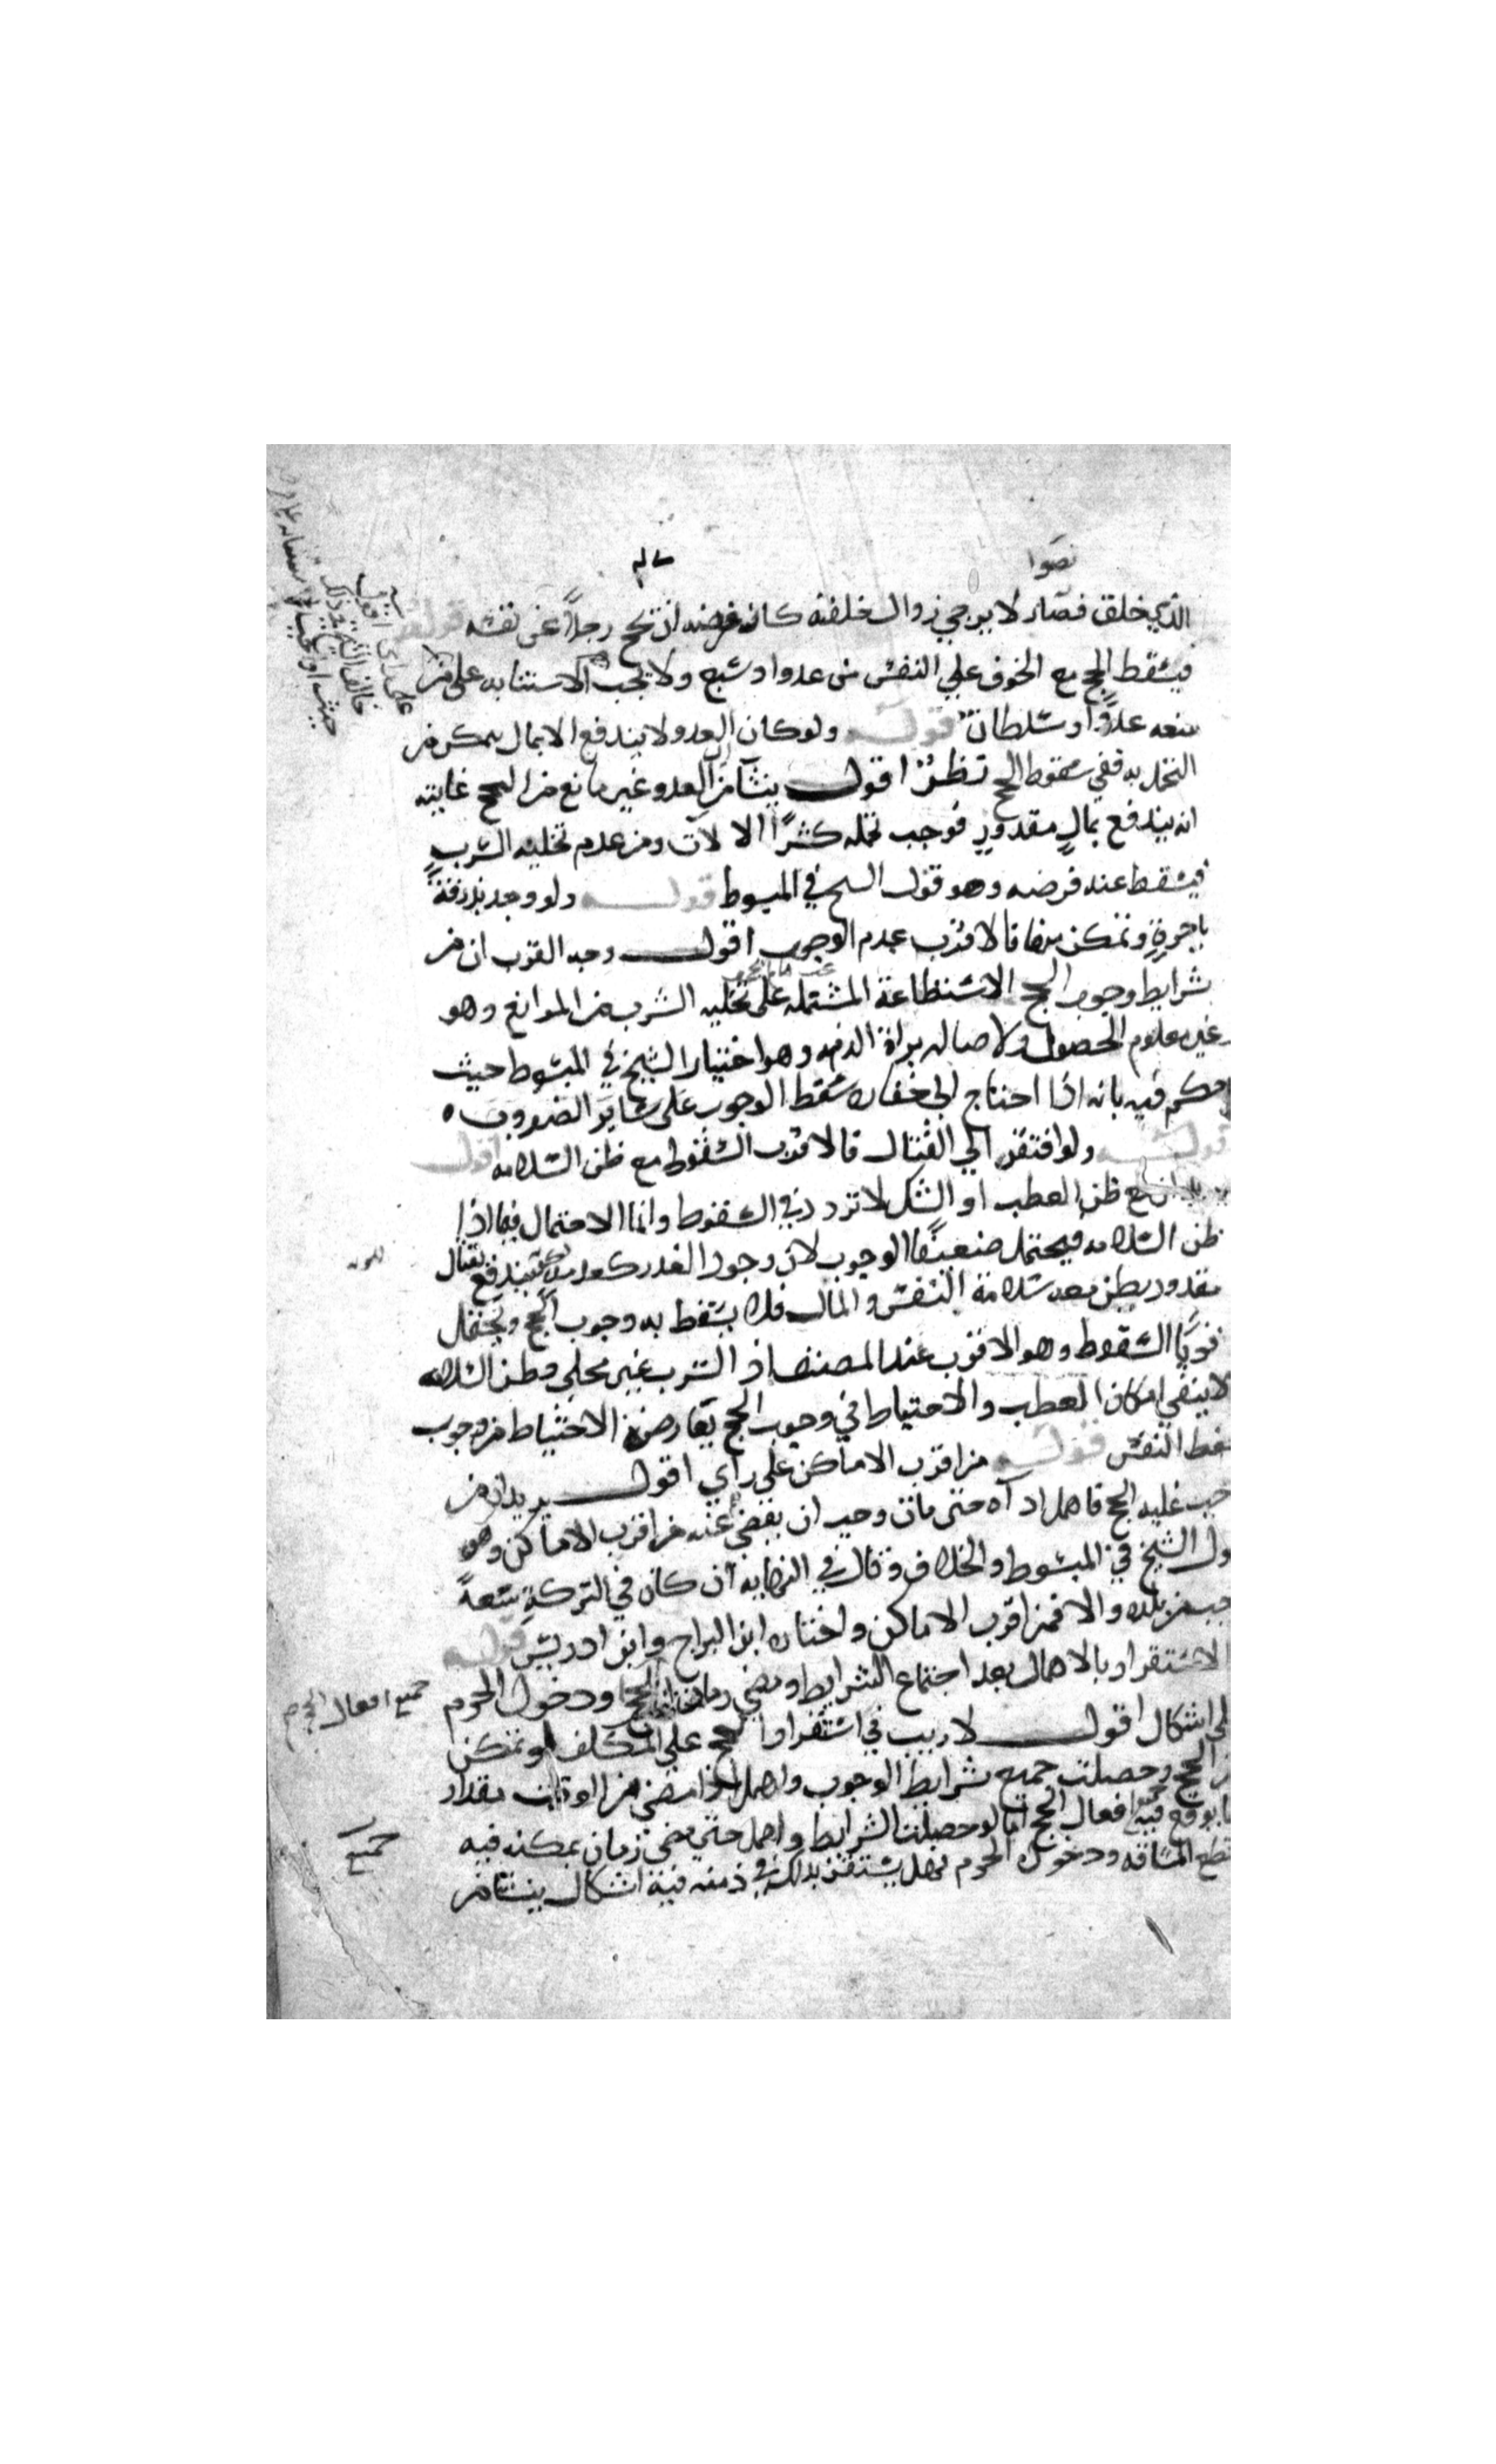 نضوا
الذي خلق فصار لا يرجي زوال خلقته كان فرضه ان يحج رجلاً عن نفسه قوله
فيسقط الحج مع الخوف علي النفس من عدو او سبع ولا يجب الاستنابه على
منعه عدوٌ او سلطان قولـــه ولو كان العدو لا يندفع الا بمال يمكن من
التحمل به ففي سقوط الحج نظرٌ اقول ينشا من ان العدو غير مانع من الحج غايته
انه يندفع بمالٍ مقدورٍ فوجب تحمله كشرا الالات ومن عدم تخليه السرب
فيسقط عنه فرضه وهو قول الشيخ في المبسوط قولـــه ولو وجد بذرقة
باجرةٍ وتمكن منها فالاقرب عدم الوجوب اقول وجه القرب ان من
شرايط وجوب الحج الاستطاعة المشتمله على تخليه السرب من الموانع وهو
غير معلوم الحصول ولاصاله براة الذمه وهو اختيار الشيخ في المبسوط حيث
حكم فيه بانه اذا احتاج الى خفاره سقط الوجوب على ساير الضروب ه
قولـــه ولو افتقر الي القتال فالاقرب السقوط مع ظن السلامه اقول
مع ظن العطب او الشك لا تردد في السقوط وانما الاحتمال فيما اذا
ظن السلامه فيحتمل ضعيفًا الوجوب لان وجود العدو كعدمه يندفع بقتال
مقدور يظن معه سلامة النفس والمال فلا يسقط به وجوب الحج ويحتمل
قويًا السقوط وهو الاقرب عند المصنف اذ السرب غير مخلي وظن السلامه
لا ينفي امكان العطب والاحتياط في وجوب الحج يعارضه الاحتياط من وجوب
حفظ النفس قولـــه من اقرب الاماكن على راي اقول يريد ان من
وجب عليه الحج فاهمل اداه حتى مات وجب ان يقضى عنه من اقرب الاماكن وهو
قول الشيخ في المبسوط والخلاف وقال في النهايه ان كان في التركةِ سعةً
وجب من بلده والا فمن اقرب الاماكن واختاره ابن البراج وابن ادريس قولـــه
الاستقرار بالاهمال بعد اجتماع الشرايط ومضي زمان الحج او دخول الحرم
على اشكال اقول لا ريب في استقرار الحج على المكلف لو تمكن
من الحج وحصلت جميع شرايط الوجوب واهمل اذا مضى من الوقت مقدار
ما يوقع فيه افعال الحج اما لو حصلت الشرايط واهمل حتى مضى زمان يمكنه فيه
قطع المسافه ودخول الحرم فهل يستقر بذلك في ذمته فيه اشكال ينشا من
جميع افعال الحج
جميع